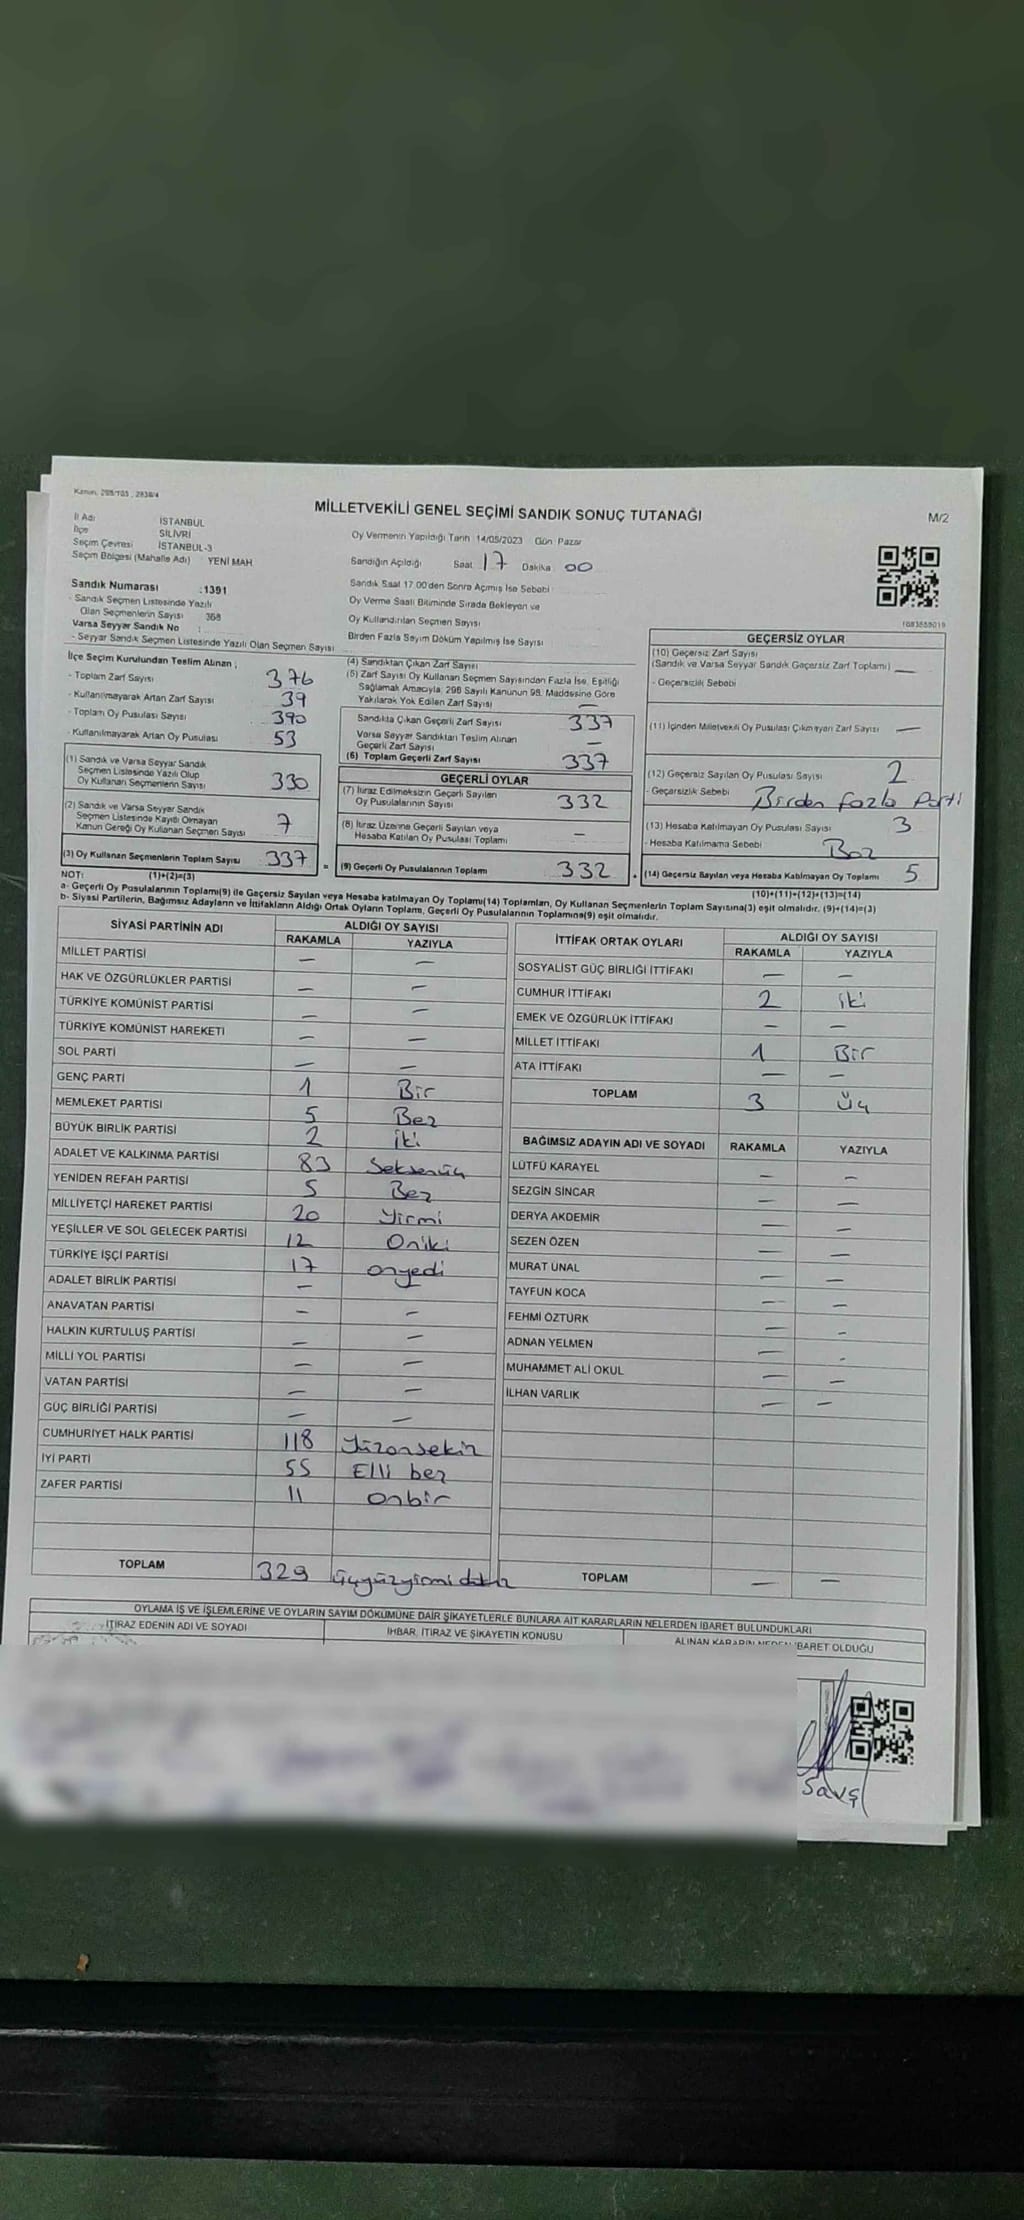 Kanun: 298/105 , 2839/4
MİLLETVEKİLİ GENEL SEÇİMİ SANDIK SONUÇ TUTANAĞI
M/2
İl Adı İSTANBUL
İlçe SİLİVRİ
Seçim Çevresi İSTANBUL-3
Seçim Bölgesi (Mahalle Adı) YENİ MAH
Oy Vermenin Yapıldığı Tarih 14/05/2023 Gün Pazar
Sandığın Açıldığı Saat 17 Dakika 00
Sandık Numarası :1391
- Sandık Seçmen Listesinde Yazılı
Olan Seçmenlerin Sayısı 368
Varsa Seyyar Sandık No :
- Seyyar Sandık Seçmen Listesinde Yazılı Olan Seçmen Sayısı
Sandık Saat 17.00'den Sonra Açmış İse Sebebi
Oy Verme Saati Bitiminde Sırada Bekleyen ve
Oy Kullandırılan Seçmen Sayısı
Birden Fazla Sayım Döküm Yapılmış İse Sayısı
İlçe Seçim Kurulundan Teslim Alınan ;
- Toplam Zarf Sayısı 376
- Kullanılmayarak Artan Zarf Sayısı 39
- Toplam Oy Pusulası Sayısı 390
- Kullanılmayarak Artan Oy Pusulası 53
(1) Sandık ve Varsa Seyyar Sandık
Seçmen Listesinde Yazılı Olup
Oy Kullanan Seçmenlerin Sayısı 330
(2) Sandık ve Varsa Seyyar Sandık
Seçmen Listesinde Kayıtlı Olmayan
Kanun Gereği Oy Kullanan Seçmen Sayısı 7
(3) Oy Kullanan Seçmenlerin Toplam Sayısı 337 =
(4) Sandıktan Çıkan Zarf Sayısı
(5) Zarf Sayısı Oy Kullanan Seçmen Sayısından Fazla İse, Eşitliği
Sağlamak Amacıyla, 298 Sayılı Kanunun 98. Maddesine Göre
Yakılarak Yok Edilen Zarf Sayısı —
Sandıkta Çıkan Geçerli Zarf Sayısı 337
Varsa Seyyar Sandıktan Teslim Alınan
Geçerli Zarf Sayısı —
(6) Toplam Geçerli Zarf Sayısı 337
GEÇERLİ OYLAR
(7) İtiraz Edilmeksizin Geçerli Sayılan
Oy Pusulalarının Sayısı 332
(8) İtiraz Üzerine Geçerli Sayılan veya
Hesaba Katılan Oy Pusulası Toplamı —
(9) Geçerli Oy Pusulalarının Toplamı 332 +
GEÇERSİZ OYLAR
(10) Geçersiz Zarf Sayısı
(Sandık ve Varsa Seyyar Sandık Geçersiz Zarf Toplamı) —
- Geçersizlik Sebebi
(11) İçinden Milletvekili Oy Pusulası Çıkmayan Zarf Sayısı —
(12) Geçersiz Sayılan Oy Pusulası Sayısı 2
- Geçersizlik Sebebi Birden fazla Parti
(13) Hesaba Katılmayan Oy Pusulası Sayısı 3
- Hesaba Katılmama Sebebi Boş
(14) Geçersiz Sayılan veya Hesaba Katılmayan Oy Toplamı 5
NOT: (1)+(2)=(3)
(10)+(11)+(12)+(13)=(14)
a- Geçerli Oy Pusulalarının Toplamı(9) ile Geçersiz Sayılan veya Hesaba katılmayan Oy Toplamı(14) Toplamları, Oy Kullanan Seçmenlerin Toplam Sayısına(3) eşit olmalıdır. (9)+(14)=(3)
b- Siyasi Partilerin, Bağımsız Adayların ve İttifakların Aldığı Ortak Oyların Toplamı, Geçerli Oy Pusulalarının Toplamına(9) eşit olmalıdır.
SİYASİ PARTİNİN ADI ALDIĞI OY SAYISI
RAKAMLA YAZIYLA
MİLLET PARTİSİ — —
HAK VE ÖZGÜRLÜKLER PARTİSİ — —
TÜRKİYE KOMÜNİST PARTİSİ — —
TÜRKİYE KOMÜNİST HAREKETİ — —
SOL PARTİ — —
GENÇ PARTİ 1 Bir
MEMLEKET PARTİSİ 5 Beş
BÜYÜK BİRLİK PARTİSİ 2 İki
ADALET VE KALKINMA PARTİSİ 83 Seksenüç
YENİDEN REFAH PARTİSİ 5 Beş
MİLLİYETÇİ HAREKET PARTİSİ 20 Yirmi
YEŞİLLER VE SOL GELECEK PARTİSİ 12 Oniki
TÜRKİYE İŞÇİ PARTİSİ 17 onyedi
ADALET BİRLİK PARTİSİ — —
ANAVATAN PARTİSİ — —
HALKIN KURTULUŞ PARTİSİ — —
MİLLİ YOL PARTİSİ — —
VATAN PARTİSİ — —
GÜÇ BİRLİĞİ PARTİSİ — —
CUMHURİYET HALK PARTİSİ 118 Yüzonsekiz
İYİ PARTİ 55 Elli beş
ZAFER PARTİSİ 11 onbir
TOPLAM 329 üçyüzyirmi dokuz
İTTİFAK ORTAK OYLARI ALDIĞI OY SAYISI
RAKAMLA YAZIYLA
SOSYALİST GÜÇ BİRLİĞİ İTTİFAKI — —
CUMHUR İTTİFAKI 2 iki
EMEK VE ÖZGÜRLÜK İTTİFAKI — —
MİLLET İTTİFAKI 1 Bir
ATA İTTİFAKI — —
TOPLAM 3 Üç
BAĞIMSIZ ADAYIN ADI VE SOYADI RAKAMLA YAZIYLA
LÜTFÜ KARAYEL — —
SEZGİN SİNCAR — —
DERYA AKDEMİR — —
SEZEN ÖZEN — —
MURAT ÜNAL — —
TAYFUN KOCA — —
FEHMİ ÖZTÜRK — —
ADNAN YELMEN — —
MUHAMMET ALİ OKUL — —
İLHAN VARLIK — —
TOPLAM — —
OYLAMA İŞ VE İŞLEMLERİNE VE OYLARIN SAYIM DÖKÜMÜNE DAİR ŞİKAYETLERLE BUNLARA AİT KARARLARIN NELERDEN İBARET BULUNDUKLARI
İTİRAZ EDENİN ADI VE SOYADI İHBAR, İTİRAZ VE ŞİKAYETİN KONUSU ALINAN KARARIN NEDEN İBARET OLDUĞU